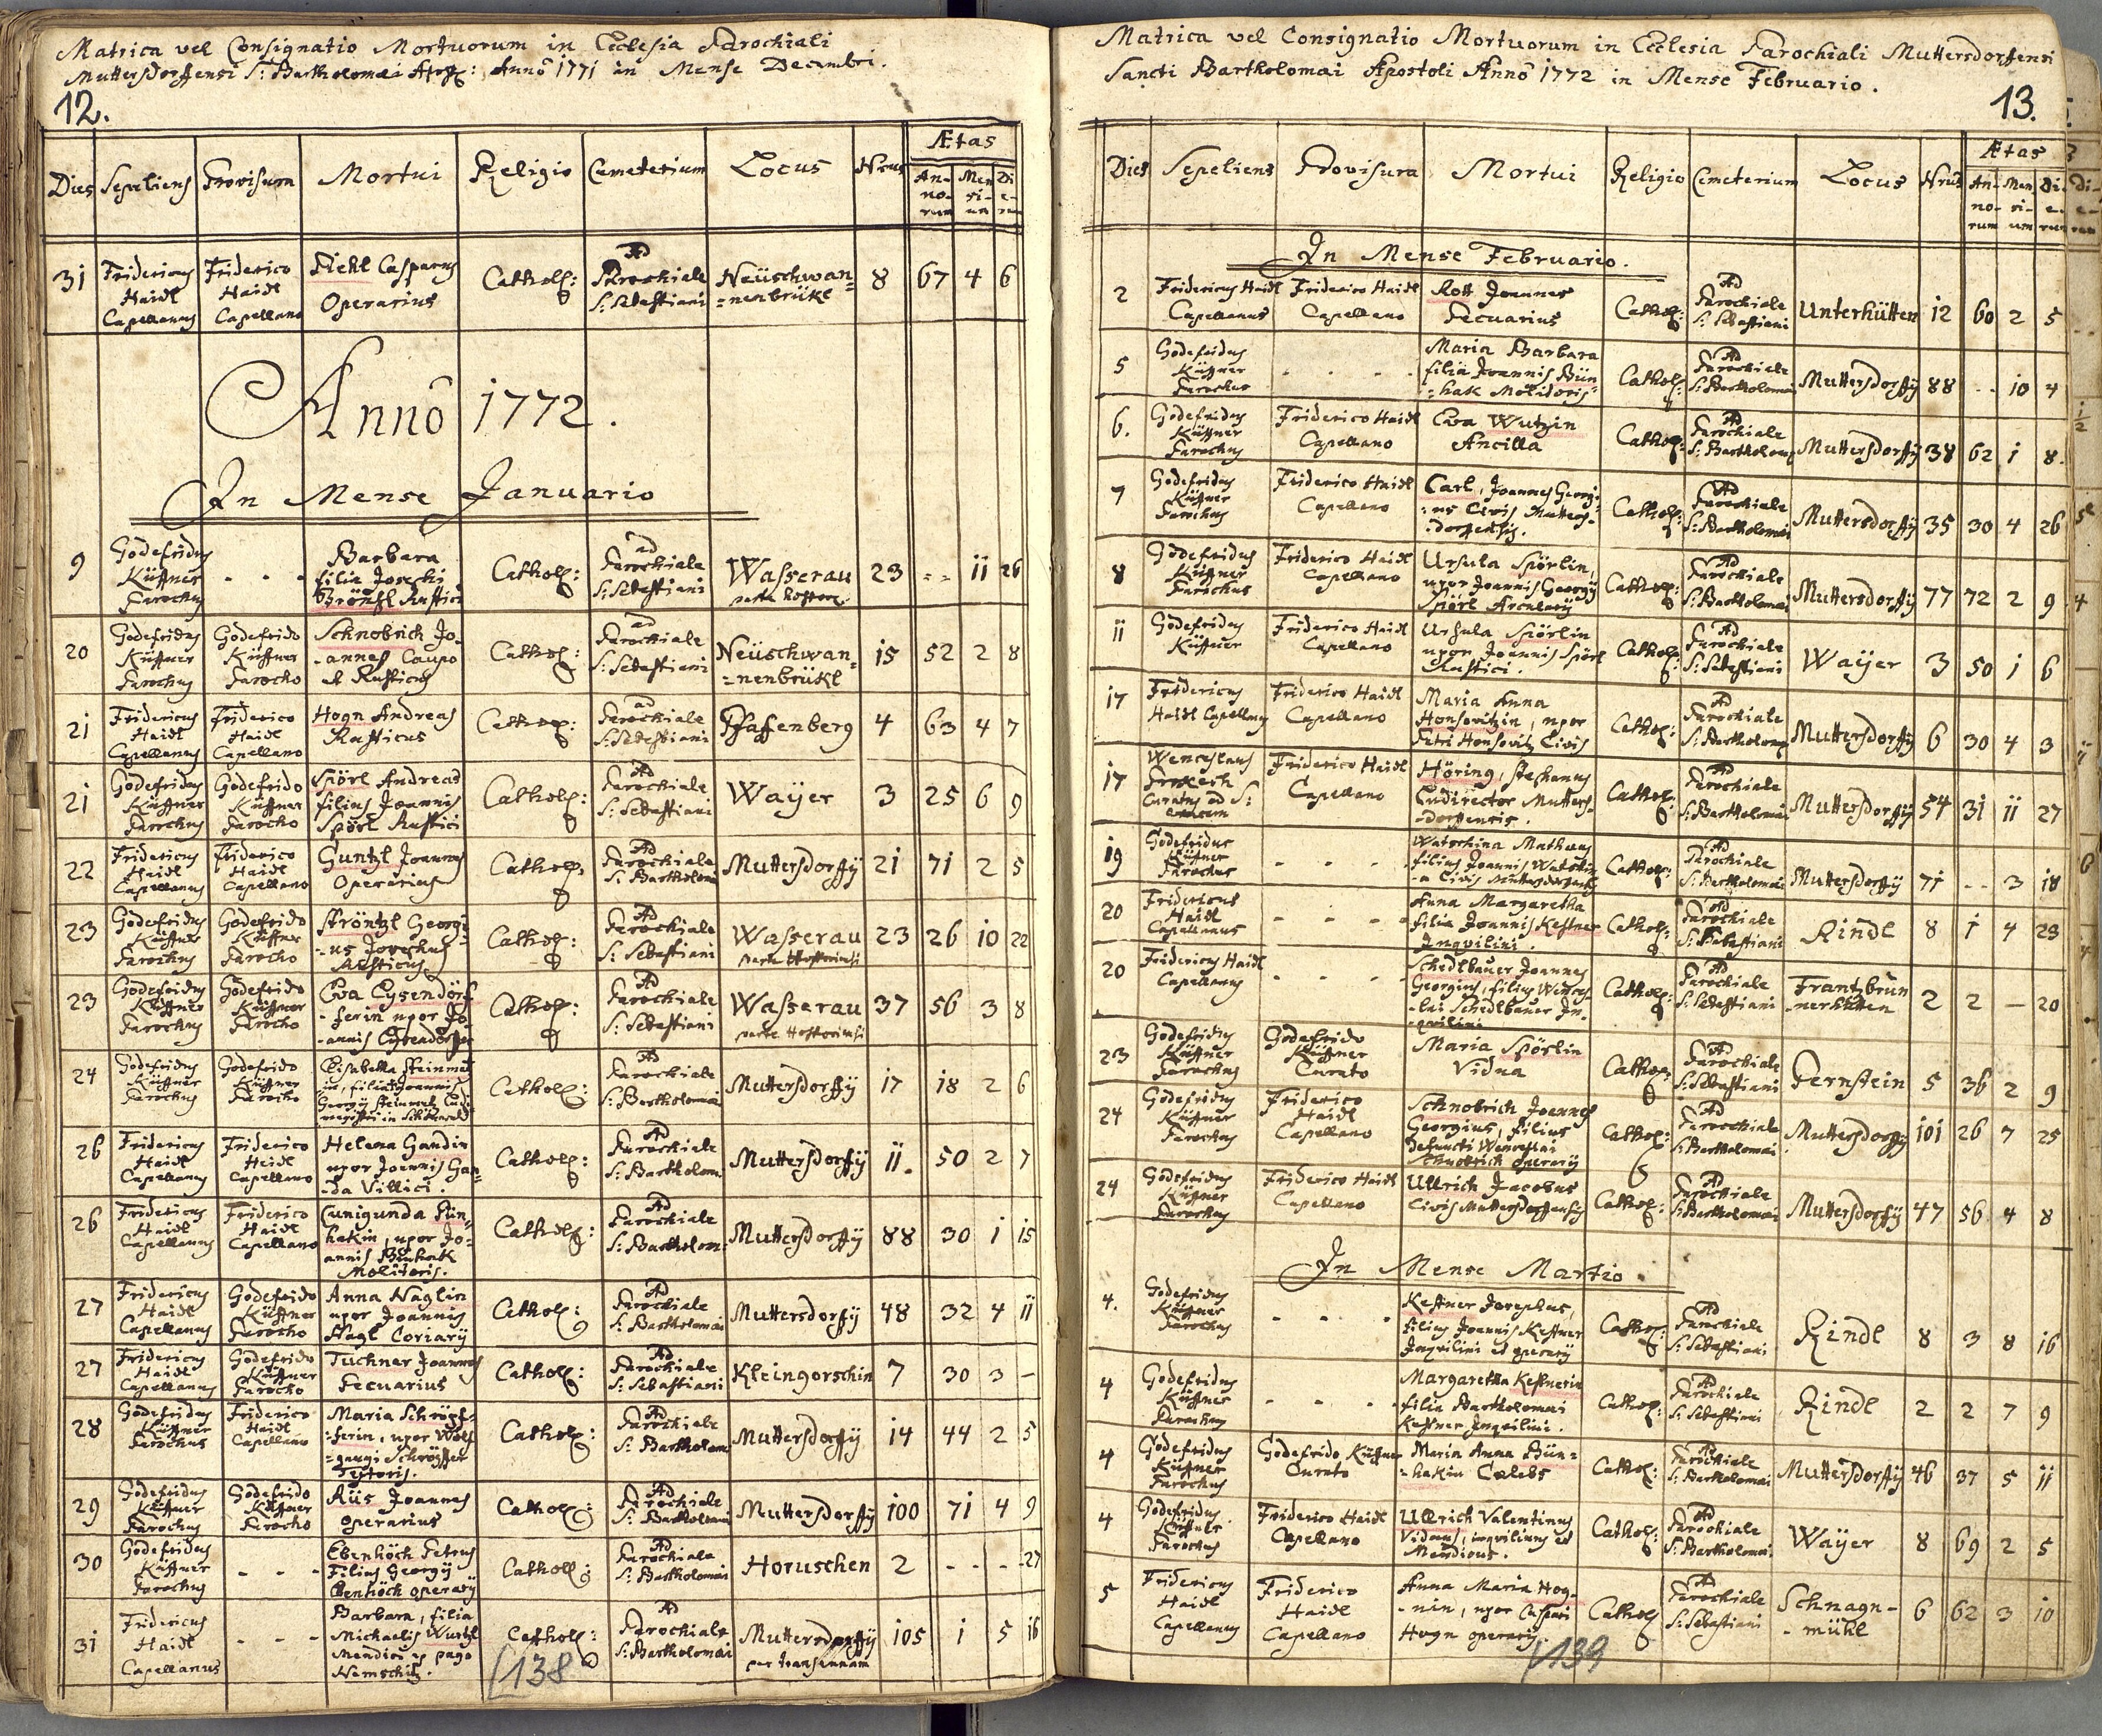 Matrica vel Consignatio Mortuorum in Ecclesia Parochiali
Muttersdorffensi S: Bartholomæi Anno 1771 in Mense Decembri.
12.
Dies Sepeliens Provisura Mortui Religio Cemeterium Locus Nrus Ætas
An-norum Men-sium Di-erum
31 Fridericus Haidl Capellanus Friderico Haidl Capellano Piehl Casparus Operarius Cathol: Ad Parochiale S: Sebastiani Neüschwan=nenbrükl 8 67 4 6
Anno 1772.
In Mense Januario
9 Godefridus Küffner Parochus - - - Barbara filia Josephi Brönsl Rustici Cathol: ad Parochiale S: Sebastiani Wasserau 23 - - 11 26
20 Godefridus Küffner Parochus Godefrido Küffner Parocho Schnobrich Joannes Caupo et Rusticus Cathol: ad Parochiale S: Sebastiani Neüschwan=nenbrükl 15 52 2 8
21 Fridericus Haidl Capellanus Friderico Haidl Capellano Hogn Andreas Rusticus Cathol: ad Parochiale S: Sebastiani Pfaffenberg 4 63 4 7
21 Godefridus Küffner Parochus Godefrido Küffner Parocho Spörl Andreas filius Joannis Spörl Rustici Cathol: Ad Parochiale S: Sebastiani Waÿer 3 25 6 9
22 Fridericus Haidl Capellanus Friderico Haidl Capellano Guntzl Joannes Operarius Cathol: Ad Parochiale S: Bartholomæi Muttersdorffÿ 21 71 2 5
23 Godefridus Küffner Parochus Godefrido Küffner Parocho Ströntzl Georgi-us Josephus Rusticus Cathol: Ad Parochiale S: Sebastiani Wasserau 23 26 10 22
23 Godefridus Küffner Parochus Godefrido Küffner Parocho Eva Eysendörf-ferin uxor Jo-annis Eysendörffer Cathol: Ad Parochiale S: Sebastiani Wasserau 37 56 3 8
24 Godefridus Küffner Parochus Godefrido Küffner Parocho Elisabetha filia Joannis Georgÿ Cathol: Ad Parochiale S: Bartholomæi Muttersdorffÿ 17 18 2 6
26 Fridericus Haidl Capellanus Friderico Haidl Capellano Helena Gandin uxor Joannis Gan-da Villici. Cathol: Ad Parochiale S: Bartholom: Muttersdorffÿ 11. 50 2 7
26 Fridericus Haidl Capellanus Friderico Haidl Capellano Cunigunda Bün-hakin, uxor Jo-annis Bünhak Molitoris. Cathol: Ad Parochiale S: Bartholom: Muttersdorffÿ 88 30 1 15
27 Fridericus Haidl Capellanus Godefrido Küffner Parocho Anna Naglin uxor Joannis Nagl Coriarÿ Cathol: Ad Parochiale S: Bartholomæi Muttersdorffÿ 48 32 4 11
27 Fridericus Haidl Capellanus Godefrido Küffner Parocho Tuchner Joannes Pecuarius Cathol: Ad Parochiale S: Sebastiani Kleingorschin 7 30 3 -
28 Godefridus Küffner Parochus Friderico Haidl Capellano Maria Schröpf-ferin, uxor Wolf=gangi Schröpffer Textoris. Cathol: Ad Parochiale S: Bartholom: Muttersdorffÿ 14 44 2 5
29 Godefridus Küffner Parochus Godefrido Küffner Parocho Riis Joannes operarius Cathol: Ad Parochiale S: Bartholomæi Muttersdorffÿ 100 71 4 9
30 Godefridus Küffner Parochus - - - Ebenhöch Petrus Filius Georgÿ Ebenhöch operarÿ Cathol: Ad Parochiale S: Bartholomæi Horuschen 2 - - - 27
31 Fridericus Haidl Capellanus - - - Barbara, filia Michaelis Wurtzl Mendici ex pago Nemschitz. Cathol: Ad Parochiale S: Bartholomæi Muttersdorffÿ per transennam 105 1 5 16
138
Matrica vel Consignatio Mortuorum in Ecclesia Parochiali Muttersdorffensi
Sancti Bartholomæi Apostoli Anno 1772 in Mense Februario.
13.
Dies Sepeliens Provisura Mortui Religio Cemeterium Locus Nrus Ætas
An-norum Men-sium Di-erum
In Mense Februario.
2 Fridericus Haidl Capellanus Friderico Haidl Capellano Rott Joannes Pecuarius Cathol: Ad Parochiale S: Sebastiani Unterhütten 12 60 2 5
5 Godefridus Küffner Parochus - - - - Maria Barbara filia Joannis Bün=hak Molitoris Cathol: Ad Parochiale S: Bartholomæi Muttersdorffÿ 88 - - 10 4
6. Godefridus Küffner Parochus Friderico Haidl Capellano Eva Wutzin Ancilla Cathol: Ad Parochiale S: Bartholomæi Muttersdorffÿ 38 62 1 8.
7 Godefridus Küffner Parochus Friderico Haidl Capellano Carl, Joannes Georgi=us Civis Mutters-dorffensis. Cathol: Ad Parochiale S: Bartholomæi Muttersdorffÿ 35 30 4 26
8 Godefridus Küffner Parochus Friderico Haidl Capellano Ursula Spörlin, uxor Joannis Georgÿ Spörl Arcularÿ Cathol: Ad Parochiale S: Bartholomæi Muttersdorffÿ 77 72 2 9
11 Godefridus Küffner Friderico Haidl Capellano Ursula Spörlin uxor Joannis Spörl Rustici. Cathol: Ad Parochiale S: Sebastiani Waÿer 3 50 1 6
17 Fridericus Haidl Capellanus Friderico Haidl Capellano Maria Anna Honsovitzin, uxor Petri Honsovitz Civis Cathol: Ad Parochiale S: Bartholomæi Muttersdorffÿ 6 30 4 3
17 Wenceslaus Curatus ad S: Friderico Haidl Capellano Höring, Stephanus Ludirector Mutters-dorffensis. Cathol: Ad Parochiale S: Bartholomæi Muttersdorffÿ 54 31 11 27
19 Godefridus Küffner Parochus - - - - Watschina Mathæus filius Joannis Watschin-a Civis Muttersdorffensis Cathol: Ad Parochiale S: Bartholomæi Muttersdorffÿ 71 - - 3 18
20 Fridericus Haidl Capellanus - - - - Anna Margaretha filia Joannis Kestner Inqvilini. Cathol: Ad Parochiale S: Sebastiani Rindl 8 1 4 23
20 Fridericus Haidl Capellanus - - - Schedlbauer Joannes Georgius, filius Wences-lai Schedlbauer In-qvilini Cathol: Ad Parochiale S: Sebastiani Frantzbrun-nerhütten 2 2 — 20
23 Godefridus Küffner Parochus Godefrido Küffner Curato Maria Spörlin Vidua Cathol: Ad Parochiale S: Sebastiani Pernstein 5 36 2 9
24 Godefridus Küffner Parochus Friderico Haidl Capellano Schnobrich Joannes Georgius, filius defuncti Wenceslai Schnobrich operarÿ Cathol: Ad Parochiale S: Bartholomæi Muttersdorffÿ 101 26 7 25
24 Godefridus Küffner Parochus Friderico Haidl Capellano Ullrich Jacobus Civis Muttersdorffensis Cathol: Ad Parochiale S: Bartholomæi Muttersdorffÿ 47 56 4 8
In Mense Martio.
4. Godefridus Küffner Parochus - - - - Kestner Josephus, filius Joannis Kestner Inqvilini et operarÿ Cathol: Ad Parochiale S: Sebastiani Rindl 8 3 8 16
4 Godefridus Küffner Parochus - - - - Margaretha Kestnerin filia Bartholomæi Kestner Inqvilini. Cathol: Ad Parochiale S: Sebastiani Rindl 2 2 7 9
4 Godefridus Küffner Parochus Godefrido Küffner Curato Maria Anna Bün=hakin Cælebs Cathol: Ad Parochiale S: Bartholomæi Muttersdorffÿ 46 37 5 11
4 Godefridus Küffner Parochus Friderico Haidl Capellano Ullrich Valentinus Viduus, inqvilinus et Mendicus. Cathol: Ad Parochiale S: Bartholomæi Waÿer 8 69 2 5
5 Fridericus Haidl Capellanus Friderico Haidl Capellano Anna Maria Hog-nin, uxor Caspari Hogn operarÿ Cathol: Ad Parochiale S: Sebastiani Schnagn-mühl 6 62 3 10
139